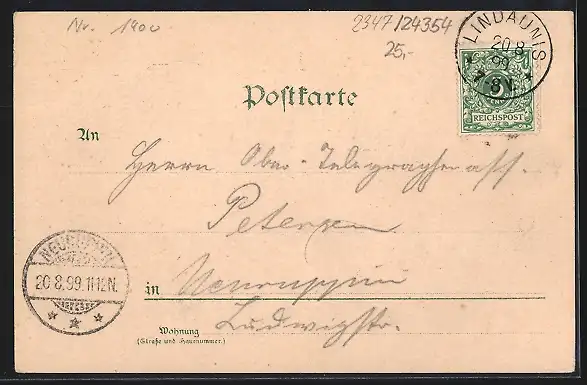 Nr. 1900
2347/24354
25,-
LINDAUNIS
20 8
99
7-8N.
5
REICHSPOST
Postkarte
An
Herrn Ober-Telegraphenass.
Petersen
NEURUPPIN
20.8.99.11-12N.
in Neuruppin
Ludwigstr.
Wohnung
(Straße und Hausnummer.)